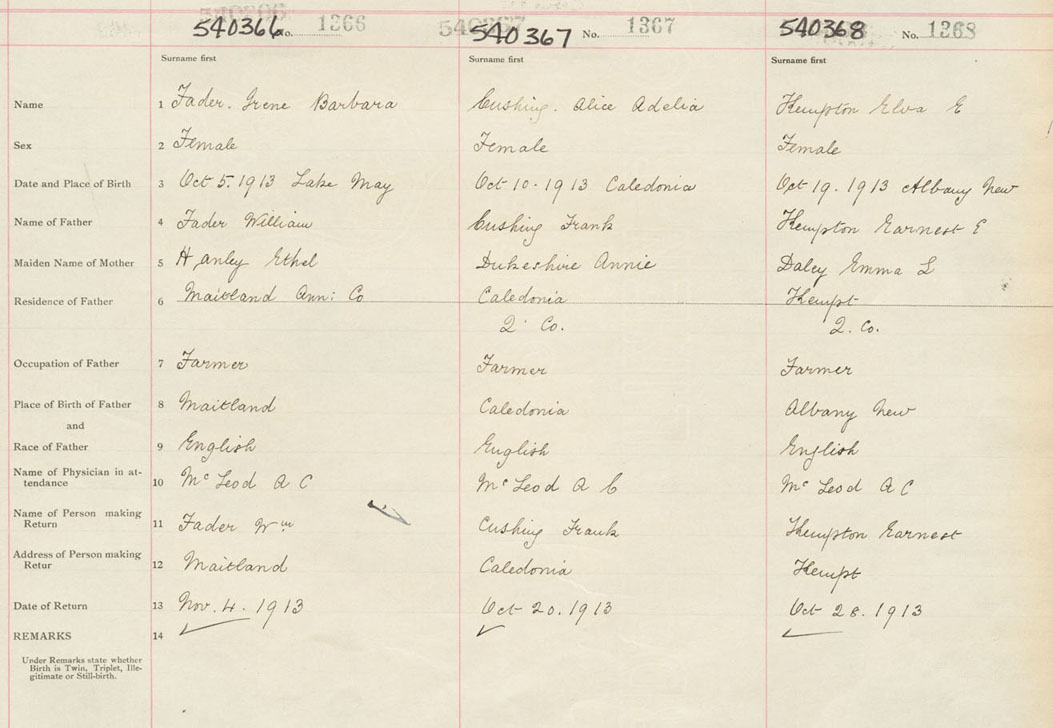 540366 No. 1366 540367 No. 1367 540368 No. 1368
Surname first Surname first Surname first
Name 1 Fader. Irene Barbara Cushing. Alice Adelia Kempton Elva E
Sex 2 Female Female Female
Date and Place of Birth 3 Oct 5. 1913 Lake May Oct 10. 1913 Caledonia Oct 19. 1913 Albany New
Name of Father 4 Fader William Cushing Frank Kempton Earnest E
Maiden Name of Mother 5 Hanley Ethel Dukeshire Annie Daley Emma L
Residence of Father 6 Maitland Ann: Co Caledonia Kempt
Q. Co. Q. Co.
Occupation of Father 7 Farmer Farmer Farmer
Place of Birth of Father 8 Maitland Caledonia Albany New
and
Race of Father 9 English English English
Name of Physician in at-
tendance 10 Mc Leod A C Mc Leod A C Mc Leod A C
Name of Person making
Return 11 Fader Wm Cushing Frank Kempton Earnest
Address of Person making
Retur 12 Maitland Caledonia Kempt
Date of Return 13 Nov. 4. 1913 Oct 20. 1913 Oct 28. 1913
REMARKS 14
Under Remarks state whether
Birth is Twin, Triplet, Ille-
gitimate or Still-birth.